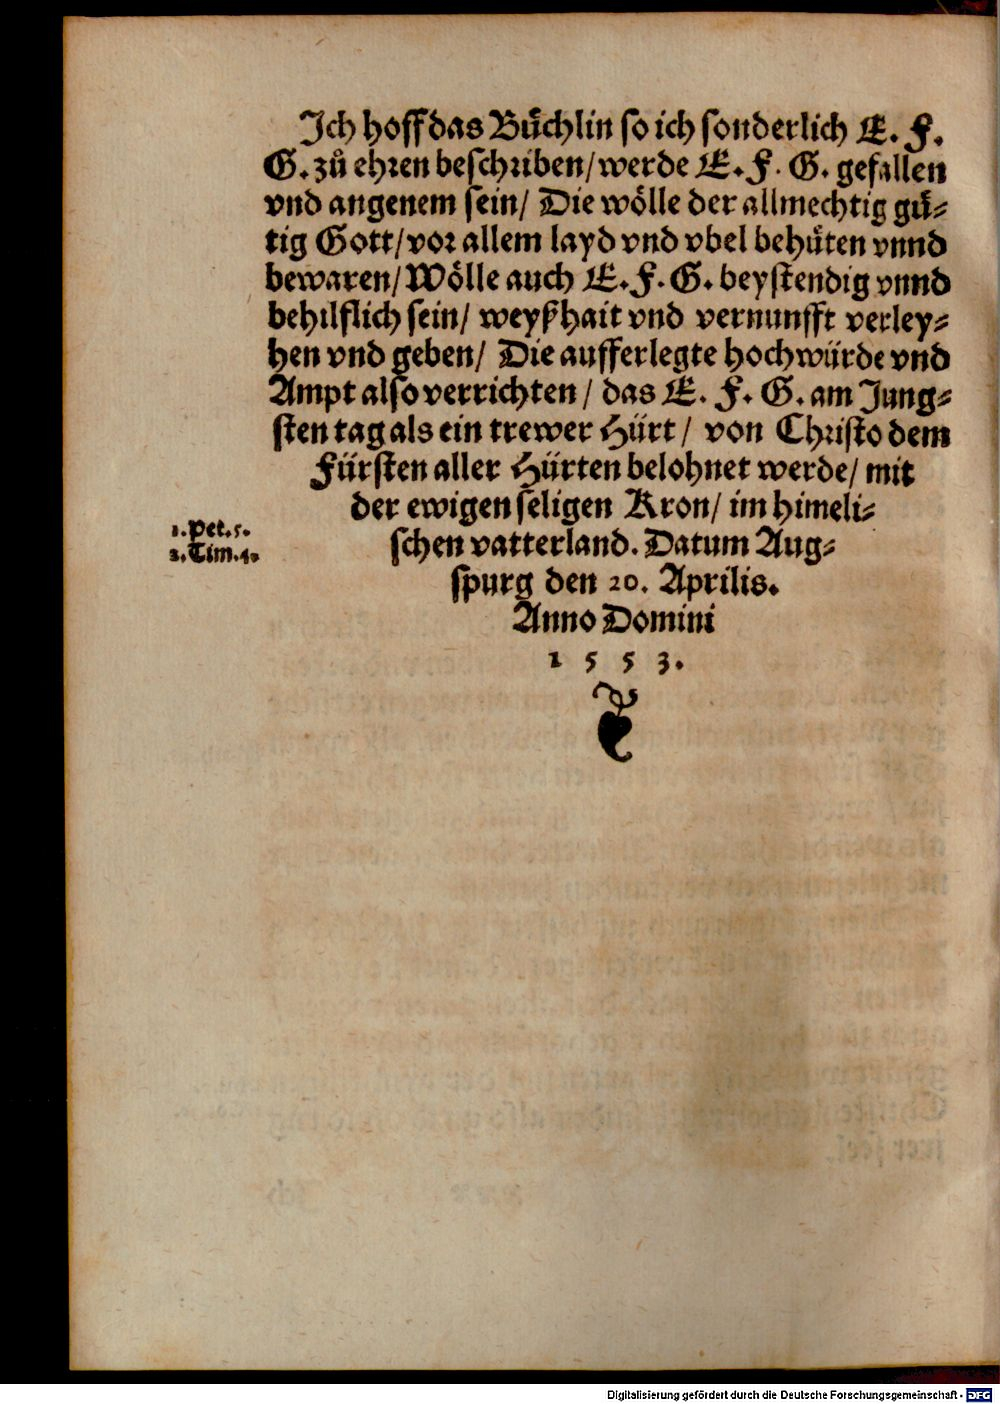 Ich hoff das Bůchlin so ich sonderlich E. F.
G. zů ehren beschriben/ werde E. F. G. gefallen
vnd angenem sein/ Die wölle der allmechtig gů-
tig Gott/ vor allem layd vnd vbel behůten vnnd
bewaren/ Wölle auch E. F. G. beystendig vnnd
behilflich sein/ weyßhait vnd vernunfft verley-
hen vnd geben/ Die aufferlegte hochwürde vnd
Ampt also verrichten/ das E. F. G. am Jung-
sten tag als ein trewer Hürt/ von Christo dem
Fürsten aller Hürten belohnet werde/ mit
der ewigen seligen Kron/ im himeli-
1.Pet.5.
2.Tim.4.
schen vatterland. Datum Aug-
spurg den 20. Aprilis.
Anno Domini
1553.
Digitalisierung gefördert durch die Deutsche Forschungsgemeinschaft - DFG